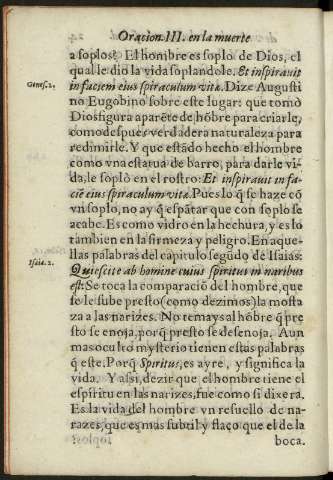 Oracion.III. en la muerte
a soplos? El hombre es soplo de Dios, el
qual le dio la vida soplandole. Et inspirauit
Genes.2.
in faciem eius spiraculum vitæ. Dize Augusti
no Eugobino sobre este lugar: que tomò
Dios figura aparẽte de hõbre para criarle,
como despues verdadera naturaleza para
redimirle. Y que estãdo hecho el hombre
como vna estatua de barro, para darle vi-
da, le soplò en el rostro: Et inspirauit in fa-
ciẽ eius spiraculum vitæ. Pues lo q̃ se haze cõ
vn soplo, no ay q̃ espãtar que con soplo se
acabe. Es como vidro en la hechura, y es lo
tambien en la firmeza y peligro. En aque-
llas palabras del capitulo segũdo de Isaias:
Isaiæ.2.
Quiescite ab homine cuius spiritus in naribus
est: Se toca la comparaciõ del hombre, que
se le sube presto (como dezimos) la mosta
za a las narizes. No temays al hõbre q̃ pre
sto se enoja, porq̃ presto se desenoja. Aun
mas oculto mysterio tienen estas palabras
q̃ este. Porq̃ Spiritus, es ayre, y significa la
vida. Y assi, dezir que el hombre tiene el
espiritu en las narizes, fue como si dixera.
Es la vida del hombre vn resuello de na-
razes, que es mas subtil y flaco que el de la
boca.